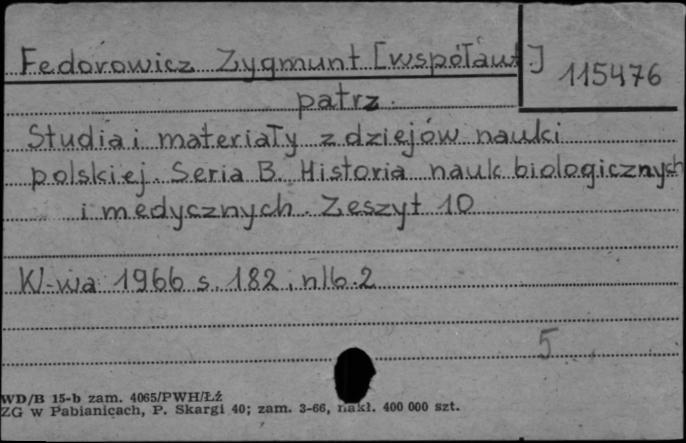 Fedorowicz Zygmunt [współaut.]
115476
patrz.
Studia i materiały z dziejów nauki
polskiej. Seria B. Historia nauk biologicznych
i medycznych. Zeszyt 10
W-wa 1966 s. 182, nlb. 2
5
WD/B 15-b zam. 4065/PWH/Łź
ZG w Pabianicach, P. Skargi 40; zam. 3-66, nakł. 400 000 szt.